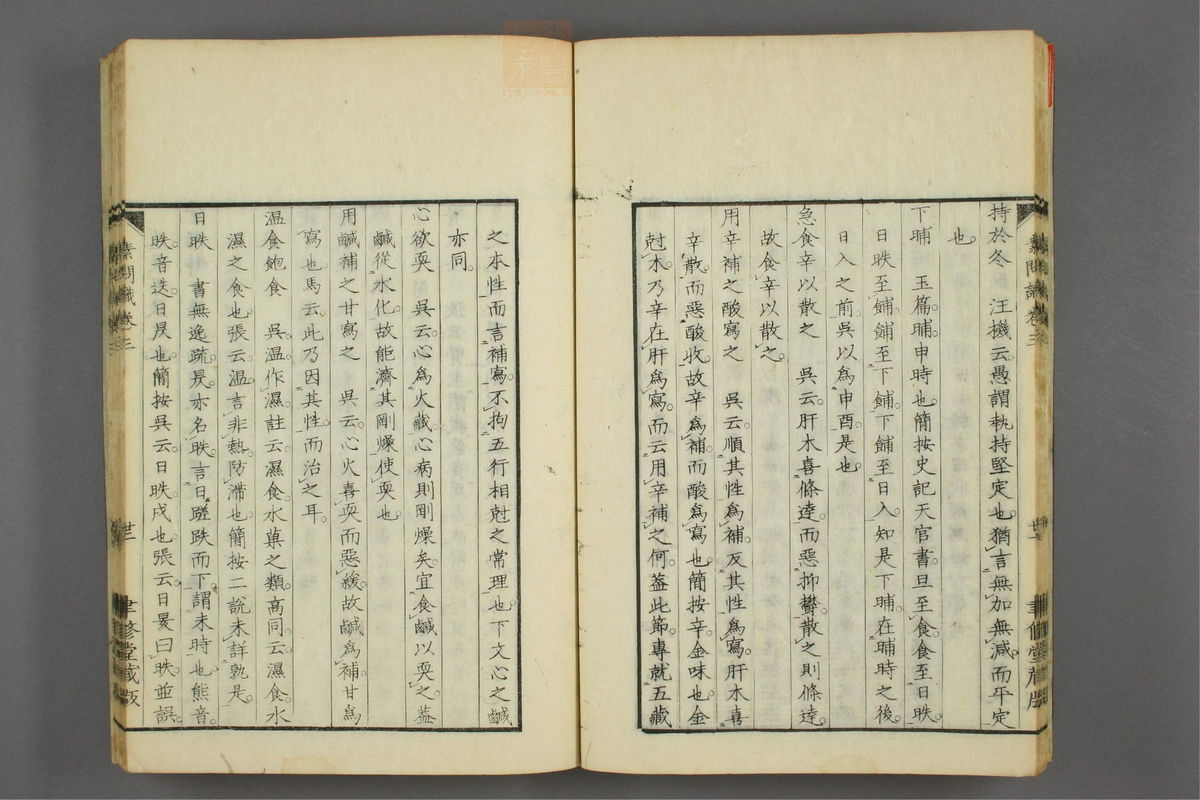 持於冬　汪機云愚謂執持堅定也猶言無加無減而平定
也
下晡　玉篇晡申時也簡按史記天官書旦至食食至日昳
日昳至餔餔至下餔下餔至日入知是下晡在晡時之後
日入之前吳以爲申酉是也
急食辛以散之　吳云肝木喜條達而惡抑鬱散之則條達
故食辛以散之
用辛補之酸寫之　吳云順其性爲補反其性爲寫肝木喜
辛散而惡酸收故辛爲補而酸爲寫也簡按辛金味也金
尅木乃辛在肝爲寫而云用辛補之何葢此節專就五藏
素問識卷三
聿修堂藏版
之本性而言補寫不拘五行相尅之常理也下文心之鹹
亦同
心欲耎　吳云心爲火藏心病則剛燥矣宜食鹹以耎之葢
鹹從水化故能濟其剛燥使耎也
用鹹補之甘寫之　吳云心火喜耎而惡緩故鹹爲補甘爲
寫也馬云此乃因其性而治之耳
溫食飽食　吳溫作濕註云濕食水菓之類高同云濕食水
濕之食也張云溫言非熱防滯也簡按二說未詳孰是
日昳　書無逸疏昃亦名昳言日蹉跌而下謂未時也熊音
昳音迭日昃也簡按吳云日昳戌也張云日晷曰昳並誤
素問識卷三
丗
聿修堂藏版